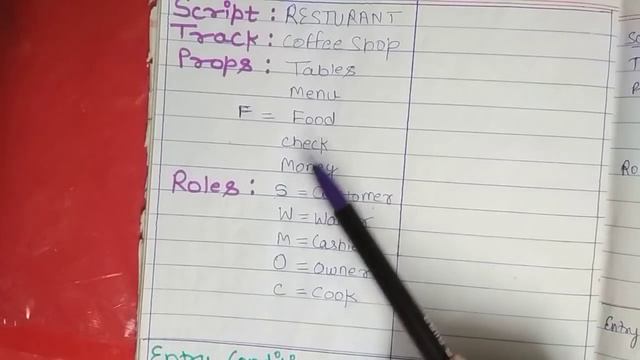 Script: RESTURANT
Track: Coffee Shop
Props: Tables
Menu
F = Food
Check
Money
Roles: S = Customer
W =
M = Cashier
O = Owner
C = Cook
Entry
Ro
Entry